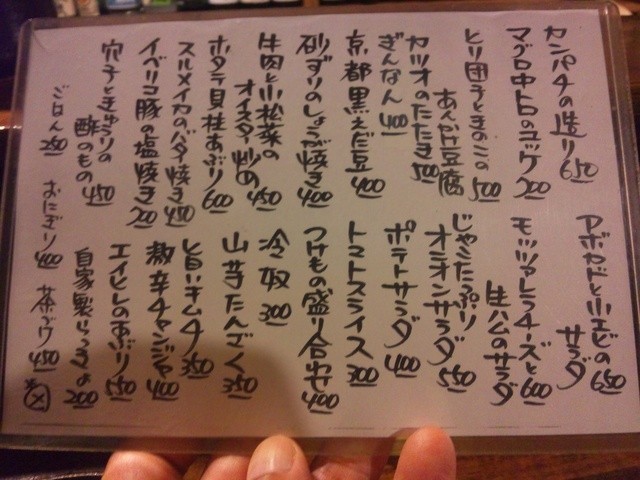 カンパチの造り 650
マグロ中トロのユッケ 700
とり団子ときのこの
あんかけ豆腐 500
カツオのたたき 500
ぎんなん 400
京都黒えだ豆 400
砂ずりのしょうが焼き 400
牛肉と小松菜の
オイスター炒め 450
ホタテ貝柱あぶり 600
スルメイカのバター焼き 450
イベリコ豚の塩焼き 700
穴子ときゅうりの
酢のもの 450
アボカドと小エビの
サラダ 650
モッツァレラチーズと
生ハムのサラダ 600
じゃこたっぷり
オニオンサラダ 550
ポテトサラダ 400
トマトスライス 300
つけもの盛り合わせ 400
冷奴 300
山芋たんざく 350
旨いキムチ 350
激辛チャンジャ 400
エイヒレのあぶり 550
自家製らっきょ 200
ごはん 250 おにぎり 400 茶づけ 450